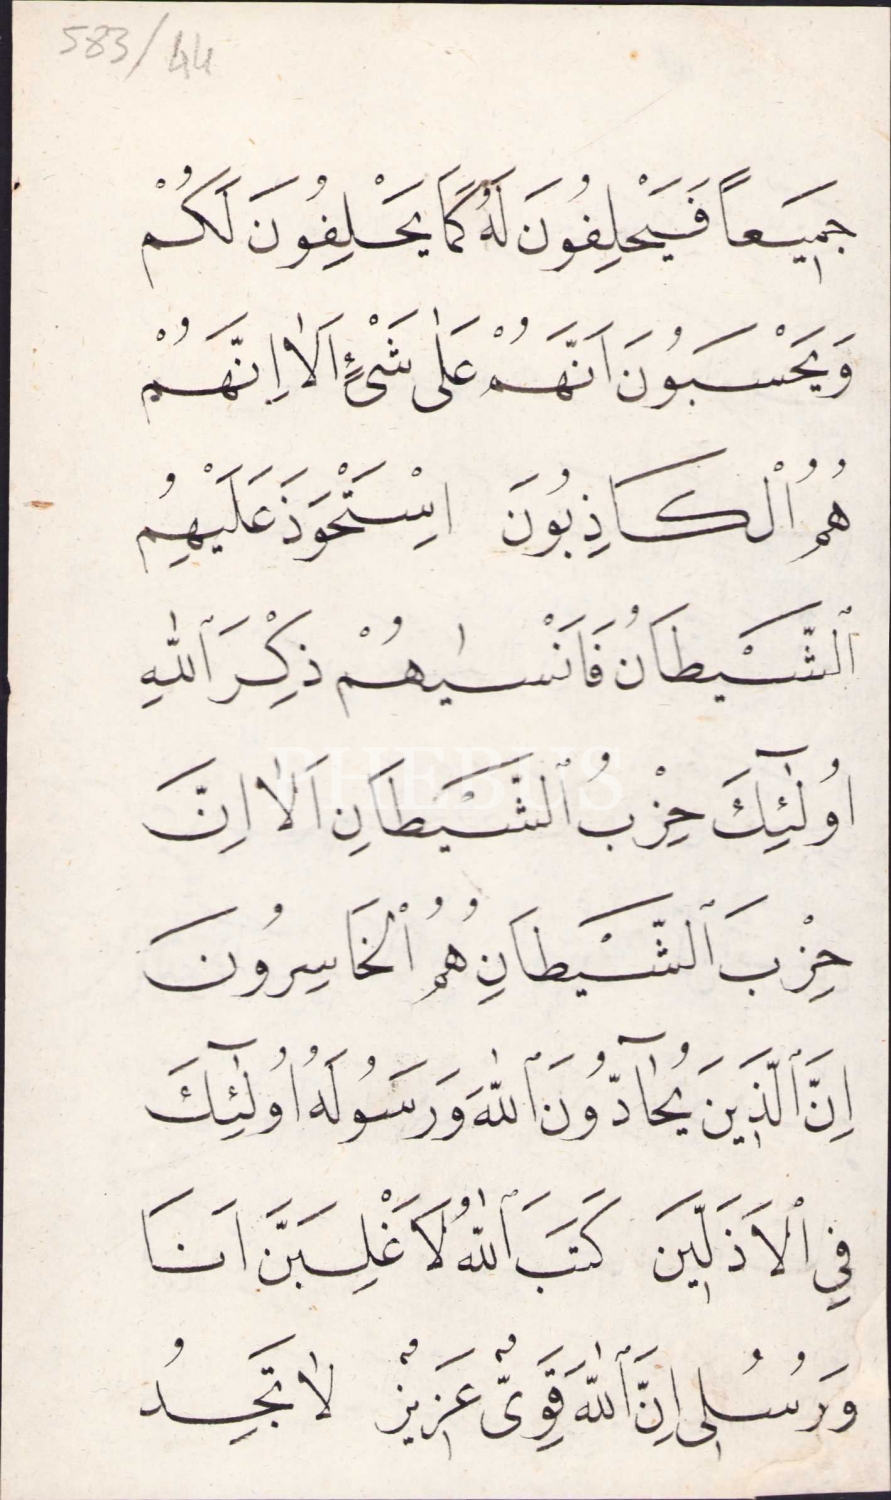 583/44
جَمِيعاً فَيَحْلِفُونَ لَهُ كَمَا يَحْلِفُونَ لَكُمْ
وَيَحْسَبُونَ اَنَّهُمْ عَلٰى شَىْءٍ اَلَٓا اِنَّهُمْ
هُمُ ٱلْكَاذِبُونَ اِسْتَحْوَذَ عَلَيْهِمُ
ٱلشَّيْطَانُ فَاَنْسٰيهُمْ ذِكْرَ ٱللّٰهِ
اُولٰٓئِكَ حِزْبُ ٱلشَّيْطَانِ اَلَٓا اِنَّ
PHEBUS
حِزْبَ ٱلشَّيْطَانِ هُمُ ٱلْخَاسِرُونَ
اِنَّ ٱلَّذِينَ يُحَٓادُّونَ ٱللّٰهَ وَرَسُولَهُ اُولٰٓئِكَ
فِي ٱلْاَذَلِّينَ كَتَبَ ٱللّٰهُ لَاَغْلِبَنَّ اَنَا
وَرُسُلِى اِنَّ ٱللّٰهَ قَوِىٌّ عَزِيزٌ لَا تَجِدُ